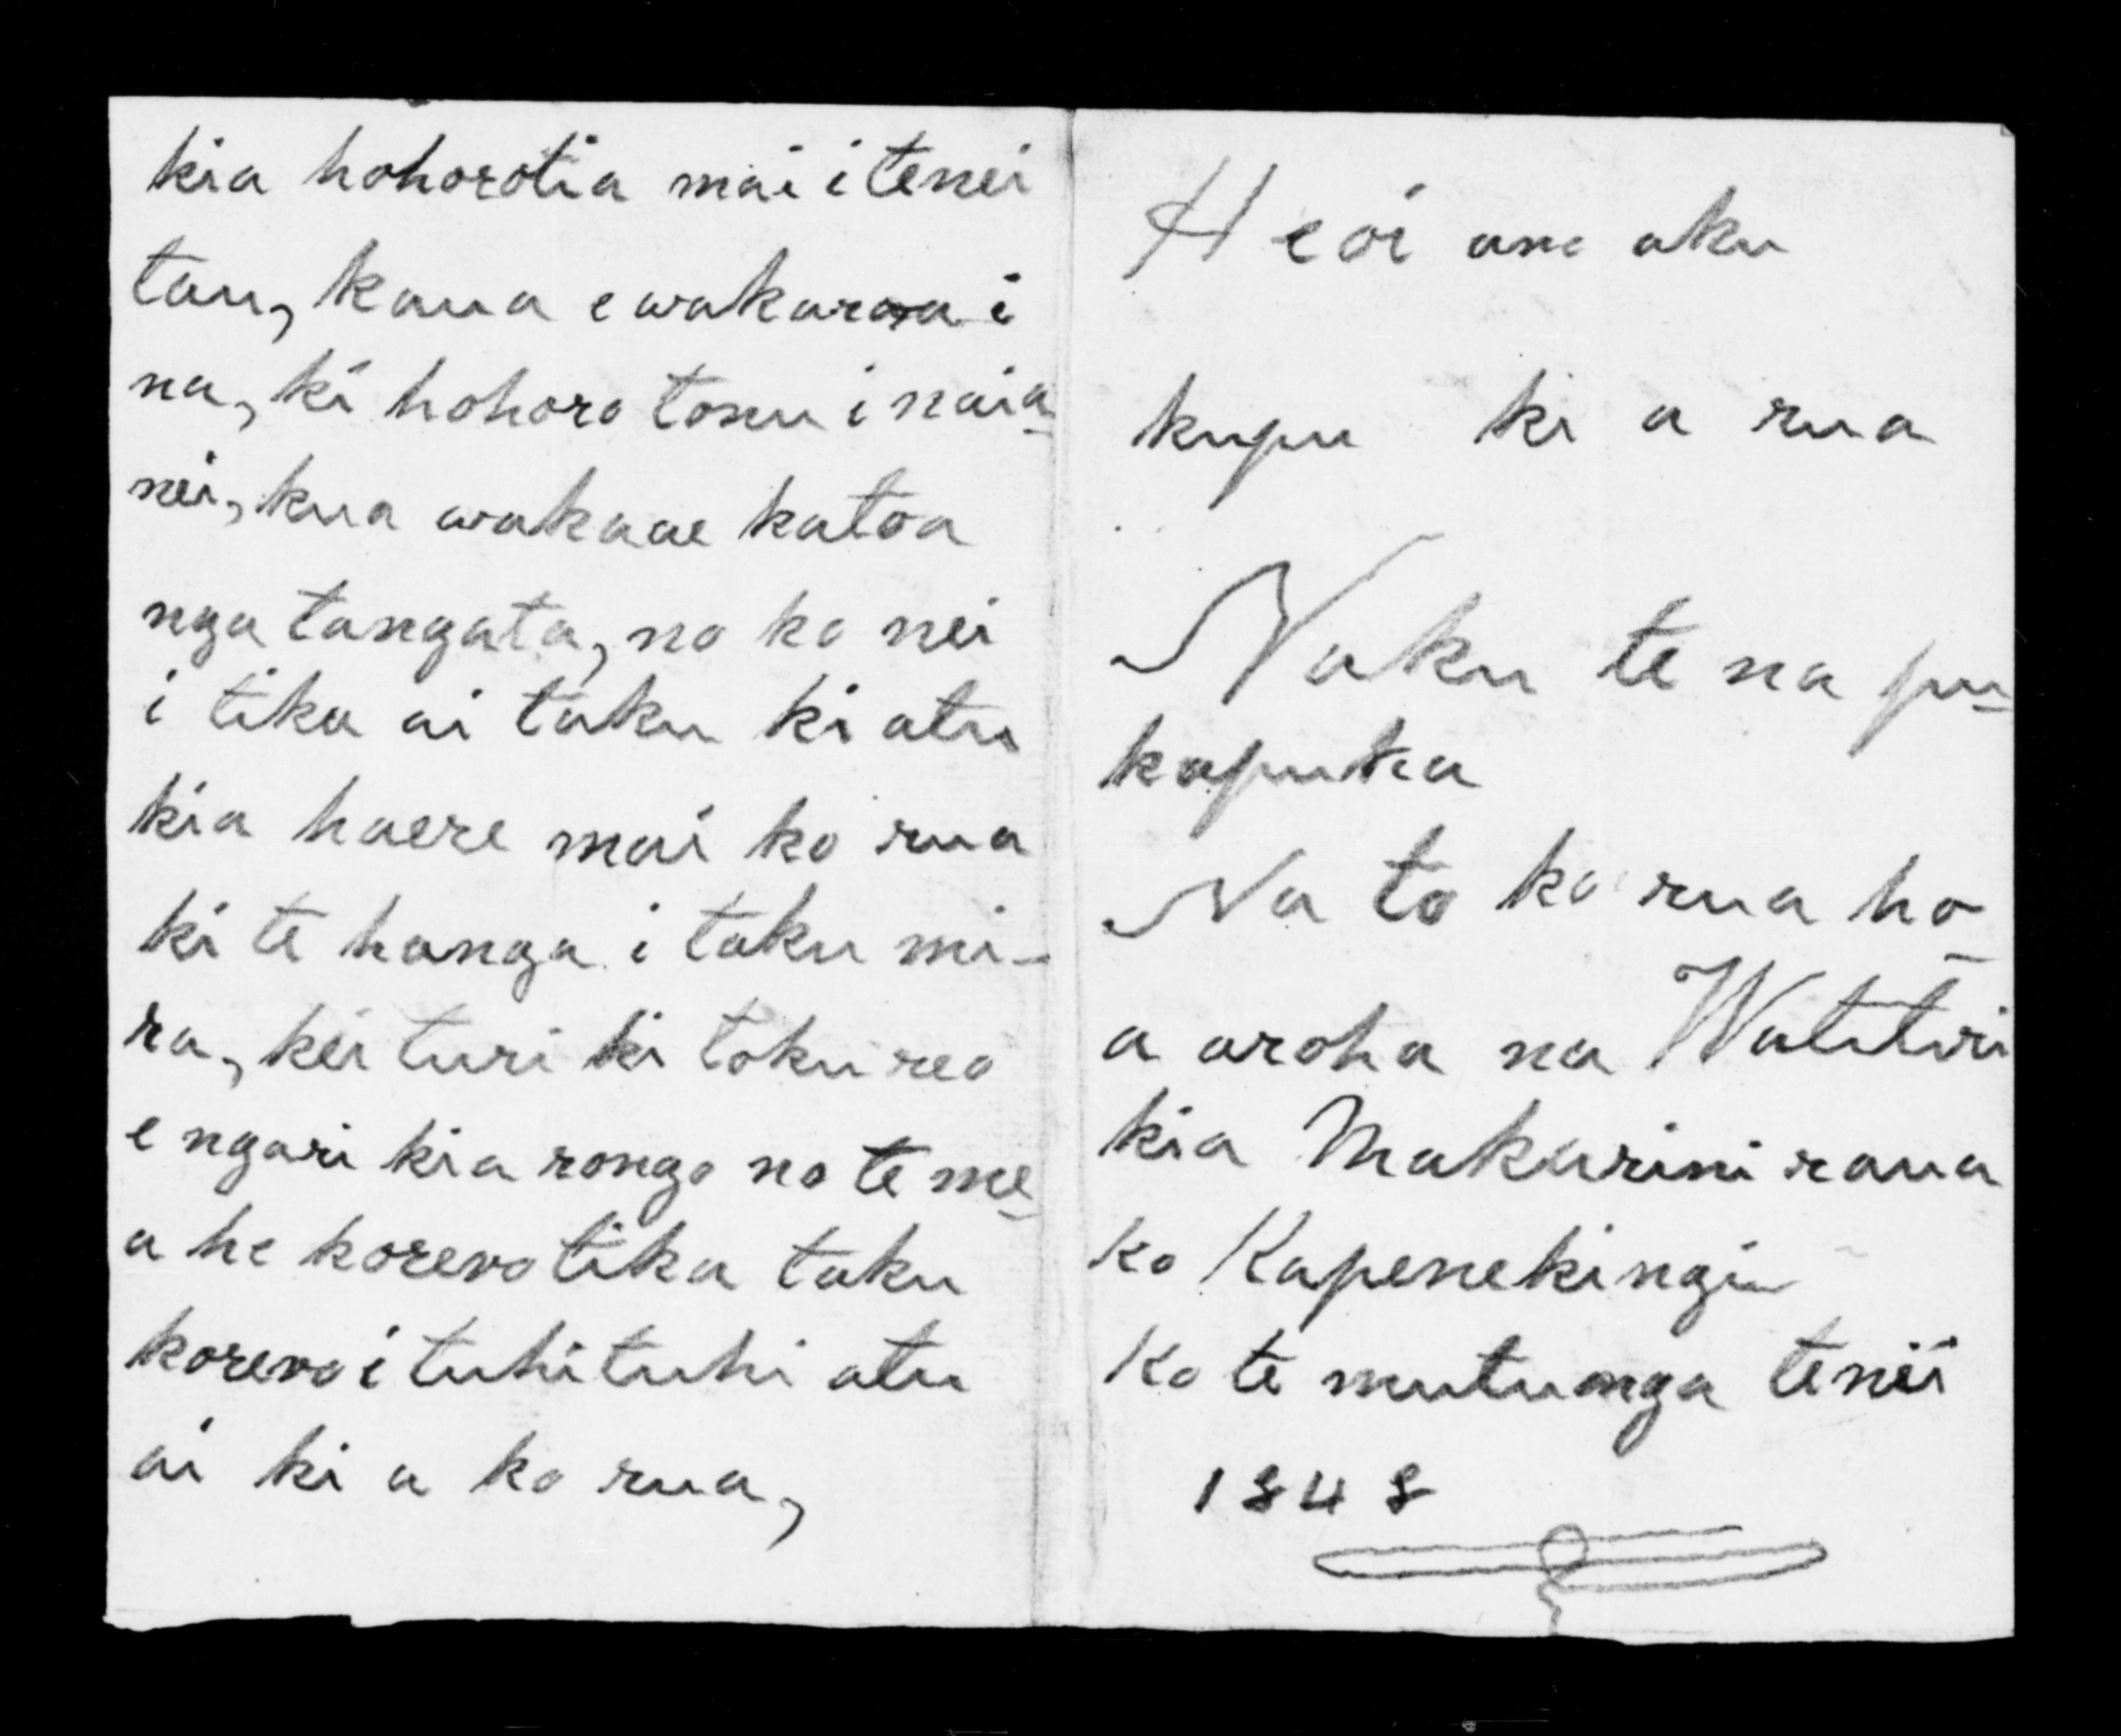 kia hohorotia mai i tenei
tau, kaua e wakaroa i
na, ki hohoro tonu i naia-
nei, kua wakaae katoa
nga tangata, no ko nei
i tika ai taku ki atu
kia haere mai ko rua
ki te hanga i taku mi-
ra, kei turi ki toku reo
e ngari kia rongo no te me-
a he korero tika taku
korero i tuhituhi atu
ai ki a ko rua,
Heoi ano aku
kupu ki a rua
Naku te na pu-
kapuka
Na to ko rua ho-
a aroha na
kia Makarini raua
ko Kapenekingi
Ko te mutunga tenei
1848